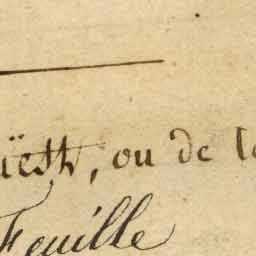 üesth, ou de l
Feuille